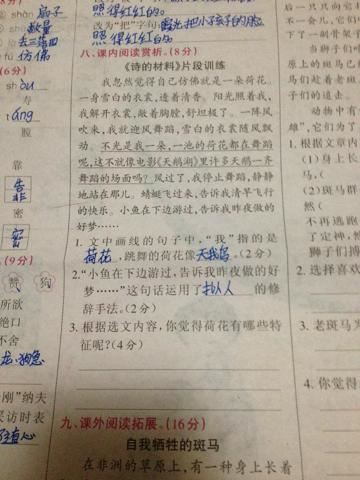 shàn 扇子
数量
去 三 四
仿佛
(6分)
shòu
寿
áng
脏
靠
告
密
密
(9分)
赞 狗
所欲
绝口
不舍
刚”纳夫
采访时表
照得红红的。
改为“把”字句: 霞光把小孩子的脸
照得红红的。
八、课内阅读赏析。(8分)
《诗的材料》片段训练
我忽然觉得自己仿佛就是一朵荷花,
一身雪白的衣裳,透着清香。阳光照着我,
我解开衣裳,敞着胸膛,舒坦极了。一阵风
吹来,我就迎风舞蹈,雪白的衣裳随风飘
动。不光是我一朵,一池的荷花都在舞蹈
呢,这不就像电影《天鹅湖》里许多天鹅一齐
舞蹈的场面吗?风过了,我停止舞蹈,静静
地站在那儿。蜻蜓飞过来,告诉我清早飞行
的快乐。小鱼在下边游过,告诉我昨夜做的
好梦……
1. 文中画线的句子中,“我”指的是
荷花,跳舞的荷花像天鹅。(2分)
2.“小鱼在下边游过,告诉我昨夜做的好
梦……”这句话运用了 拟人 的修
辞手法。(2分)
3. 根据选文内容,你觉得荷花有哪些特
征呢?(4分)
九、课外阅读拓展。(16分)
自我牺牲的斑马
在非洲的草原上,有一种身上长着
八只狮子们
不一会儿,它们
下了一副骨架子
原上的斑马已
马们趁着老
子们的追击。
动物中有
雄”,它们为了
1. 根据文章内
(1)身上长
马,(
(2)斑马
(然
不再逃跑
了定神,
狮子们搏
2. 选择喜欢
3. 老斑马
4. 你觉得